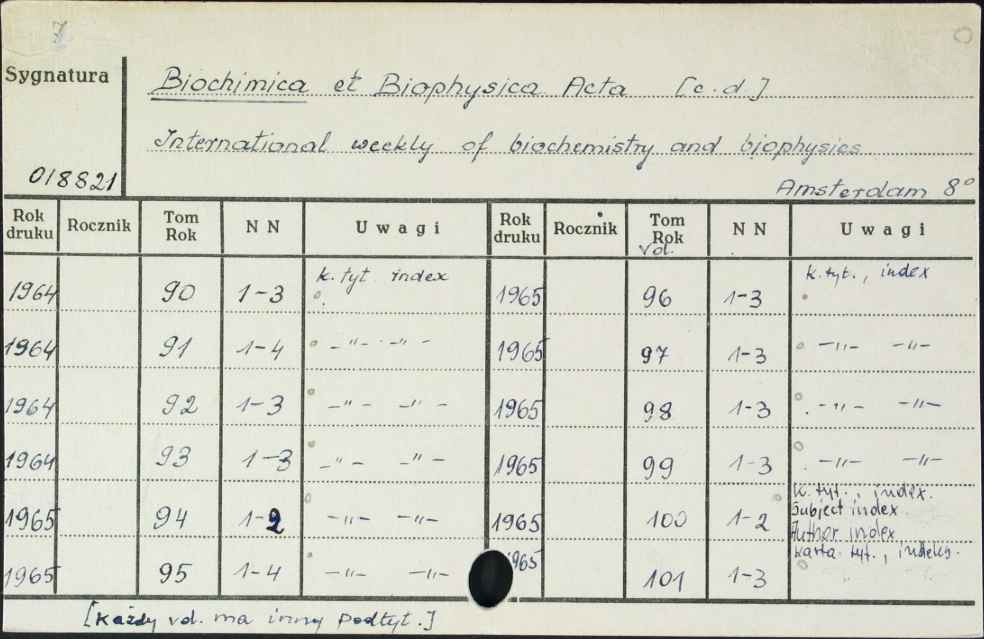 7
Sygnatura
Biochimica et Biophysica Acta [c.d.]
International weekly of biochemistry and biophysics
018821
Amsterdam 8°
Rok druku Rocznik Tom Rok NN Uwagi Rok druku Rocznik Tom Rok Vol. NN Uwagi
1964 90 1-3 k. tyt index 1965 96 1-3 k. tyt., index
1964 91 1-4 -"- -"- 1965 97 1-3 -"- -"-
1964 92 1-3 -"- -"- 1965 98 1-3 -"- -"-
1964 93 1-3 -"- -"- 1965 99 1-3 -"- -"-
1965 94 1-2 -"- -"- 1965 100 1-2 k. tyt., index.
Subject index
Author index
1965 95 1-4 -"- -"- 1965 101 1-3 karta tyt., indeks.
[Każdy vol. ma inny podtyt.]